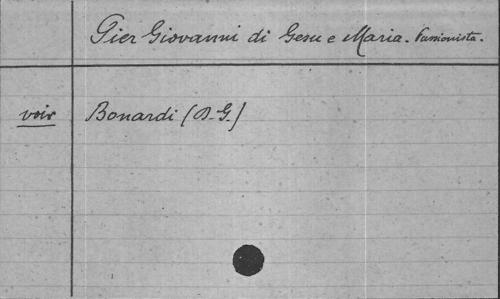 Pier Giovanni di Gesu e Maria. Passionista.
voir Bonardi (D. G.)